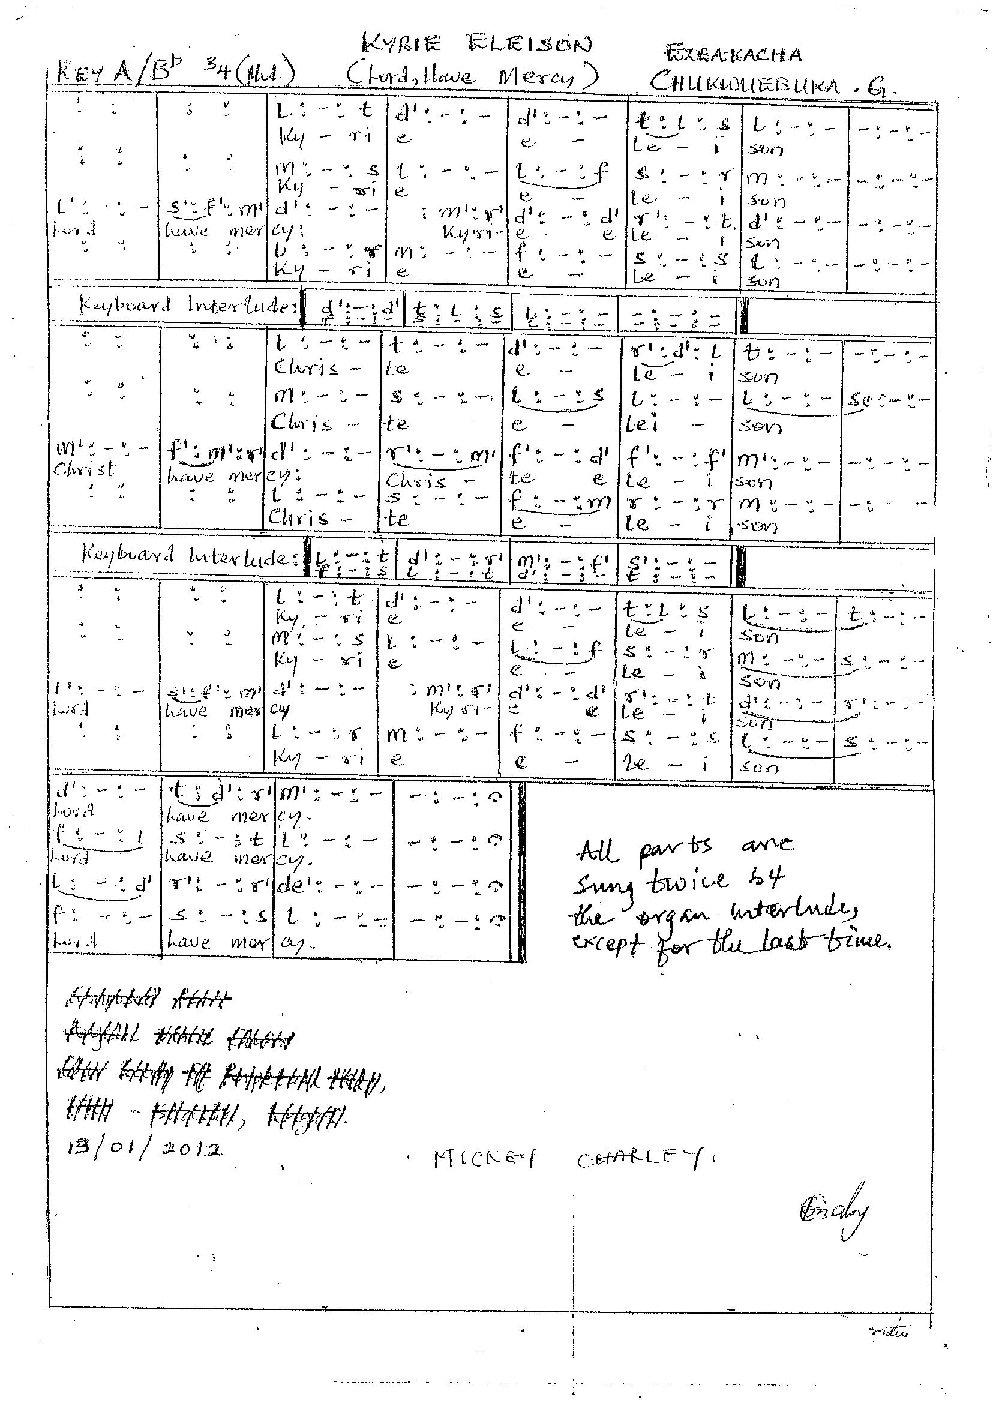 KYRIE ELEISON
KEY A/Bb 3/4 (Md.) (Lord, Have Mercy) EZEAKACHA CHUKWUEBUKA . G.
: : : : L : - : t d' : - : - d' : - : - t : L : s L : - : - - : - : -
Ky - ri e e - le - i son
: : : : m : - : s L : - : - L : - : f s : - : r m : - : - - : - : -
Ky - ri e e - le - i son
L' : - : - s' : f' : m' d' : - : - : m' : r' d' : - : d' r' : - : t d' : - : - - : - : -
Lord have mer cy: Kyri- e e le - i son
: : : : L : - : r m : - : - f : - : - s : - : s L : - : - - : - : -
Ky - ri e e - le - i son
Keyboard Interlude: d' : - : d' t : L : s L : - : - - : - : -
: : : : L : - : - t : - : - d' : - : - r' : d' : L t : - : - - : - : -
Chris - te e - le - i son
: : : : m : - : - s : - : - L : - : s L : - : - L : - : - se : - : -
Chris - te e - lei - son
m' : - : - f' : m' : r' d' : - : - r' : - : m' f' : - : d' f' : - : f' m' : - : - - : - : -
Christ have mercy: Chris - te e le - i son
: : : : L : - : - s : - : - f : - : m r : - : r m : - : - - : - : -
Chris - te e - le - i son
Keyboard Interlude: L : - : t d' : - : r' m' : - : f' s' : - : -
f : - : s L : - : t d' : - : - t : - : -
: : : : L : - : t d' : - : - d' : - : - t : L : s L : - : - t : - : -
Ky - ri e e - le - i son
: : : : m : - : s L : - : - L : - : f s : - : r m : - : - s : - : -
Ky - ri e e - le - i son
L' : - : - s' : f' : m' d' : - : - : m' : r' d' : - : d' r' : - : t d' : - : - r' : - : -
Lord have mer cy Kyri- e e le - i son
: : : : L : - : r m : - : - f : - : - s : - : s L : - : - s : - : -
Ky - ri e e - le - i son
d' : - : - t : d' : r' m' : - : - - : - :
Lord have mer cy.
f : - : L s : - : t L : - : - - : - :
Lord have mer cy.
L : - : d' r' : - : r' de' : - : - - : - :
f : - : - s : - : s L : - : - - : - :
Lord have mer cy.
All parts are
sung twice b4
the organ interlude,
except for the last time.
13/01/2012
MICKEY CHARLEY.